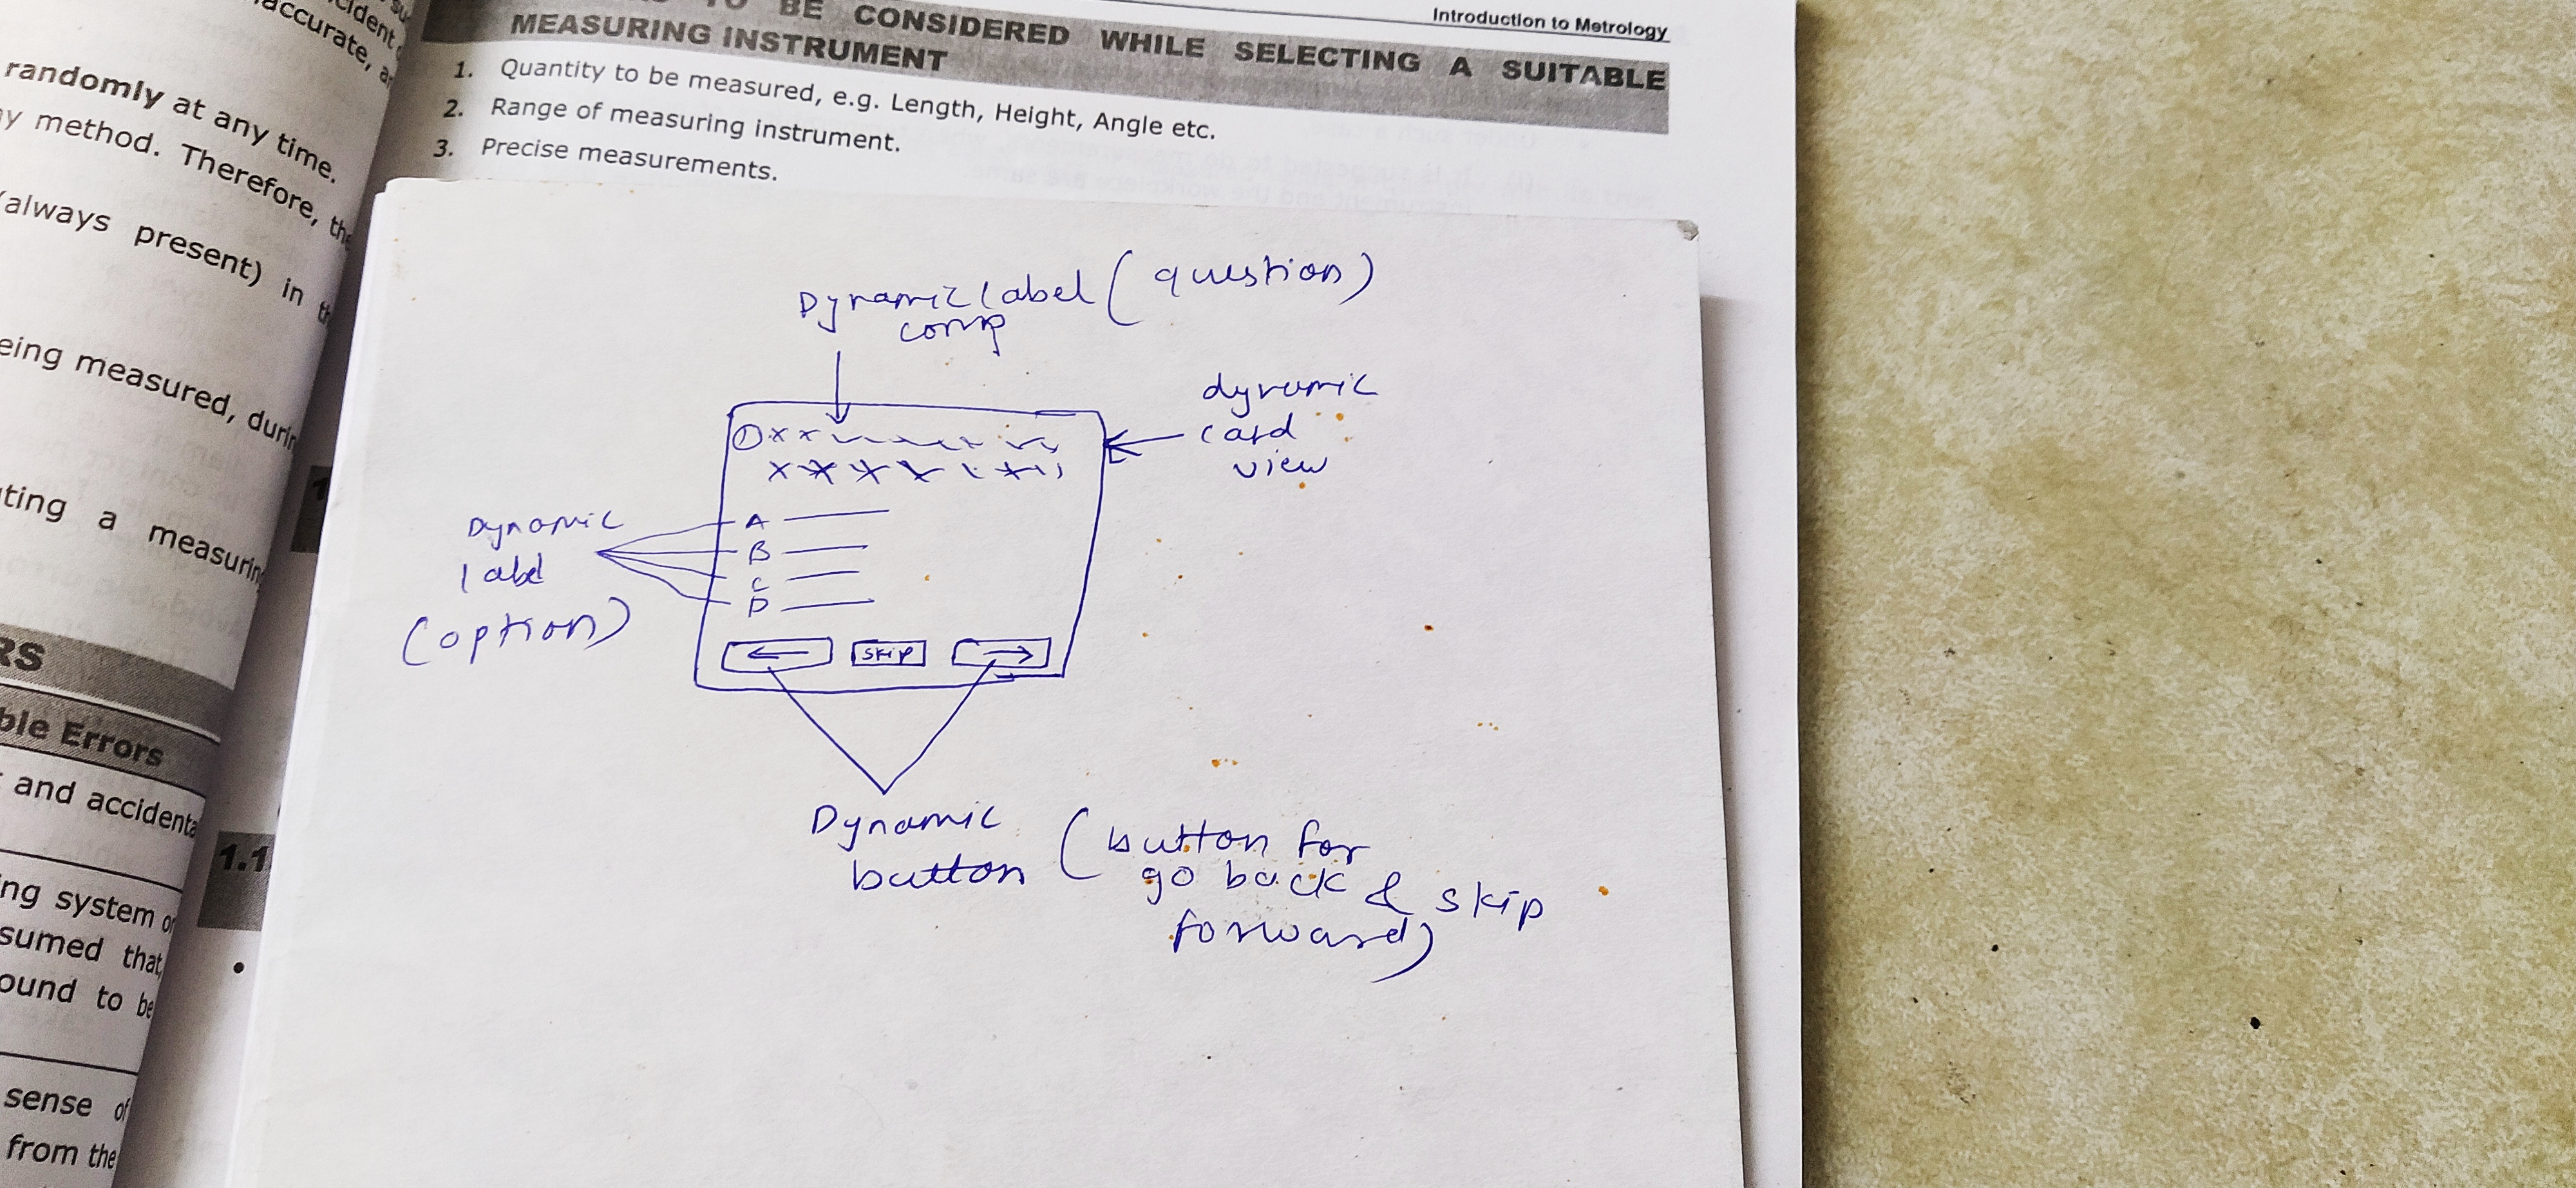 accident
accurate,
randomly at any time.
method. Therefore, the
(always present) in
being measured,
a measuring
RS
Errors
and accidenta
system
sumed that
ound to be
sense of
from the
Introduction to Metrology
TO BE CONSIDERED WHILE SELECTING A SUITABLE
MEASURING INSTRUMENT
1. Quantity to be measured, e.g. Length, Height, Angle etc.
2. Range of measuring instrument.
3. Precise measurements.
1.1
Dynamic label (question)
comp
dynamic
card
view
1
Dynamic
label
(option)
A
B
C
D
← SKIP →
Dynamic
button
(button for
go back & skip
forward)